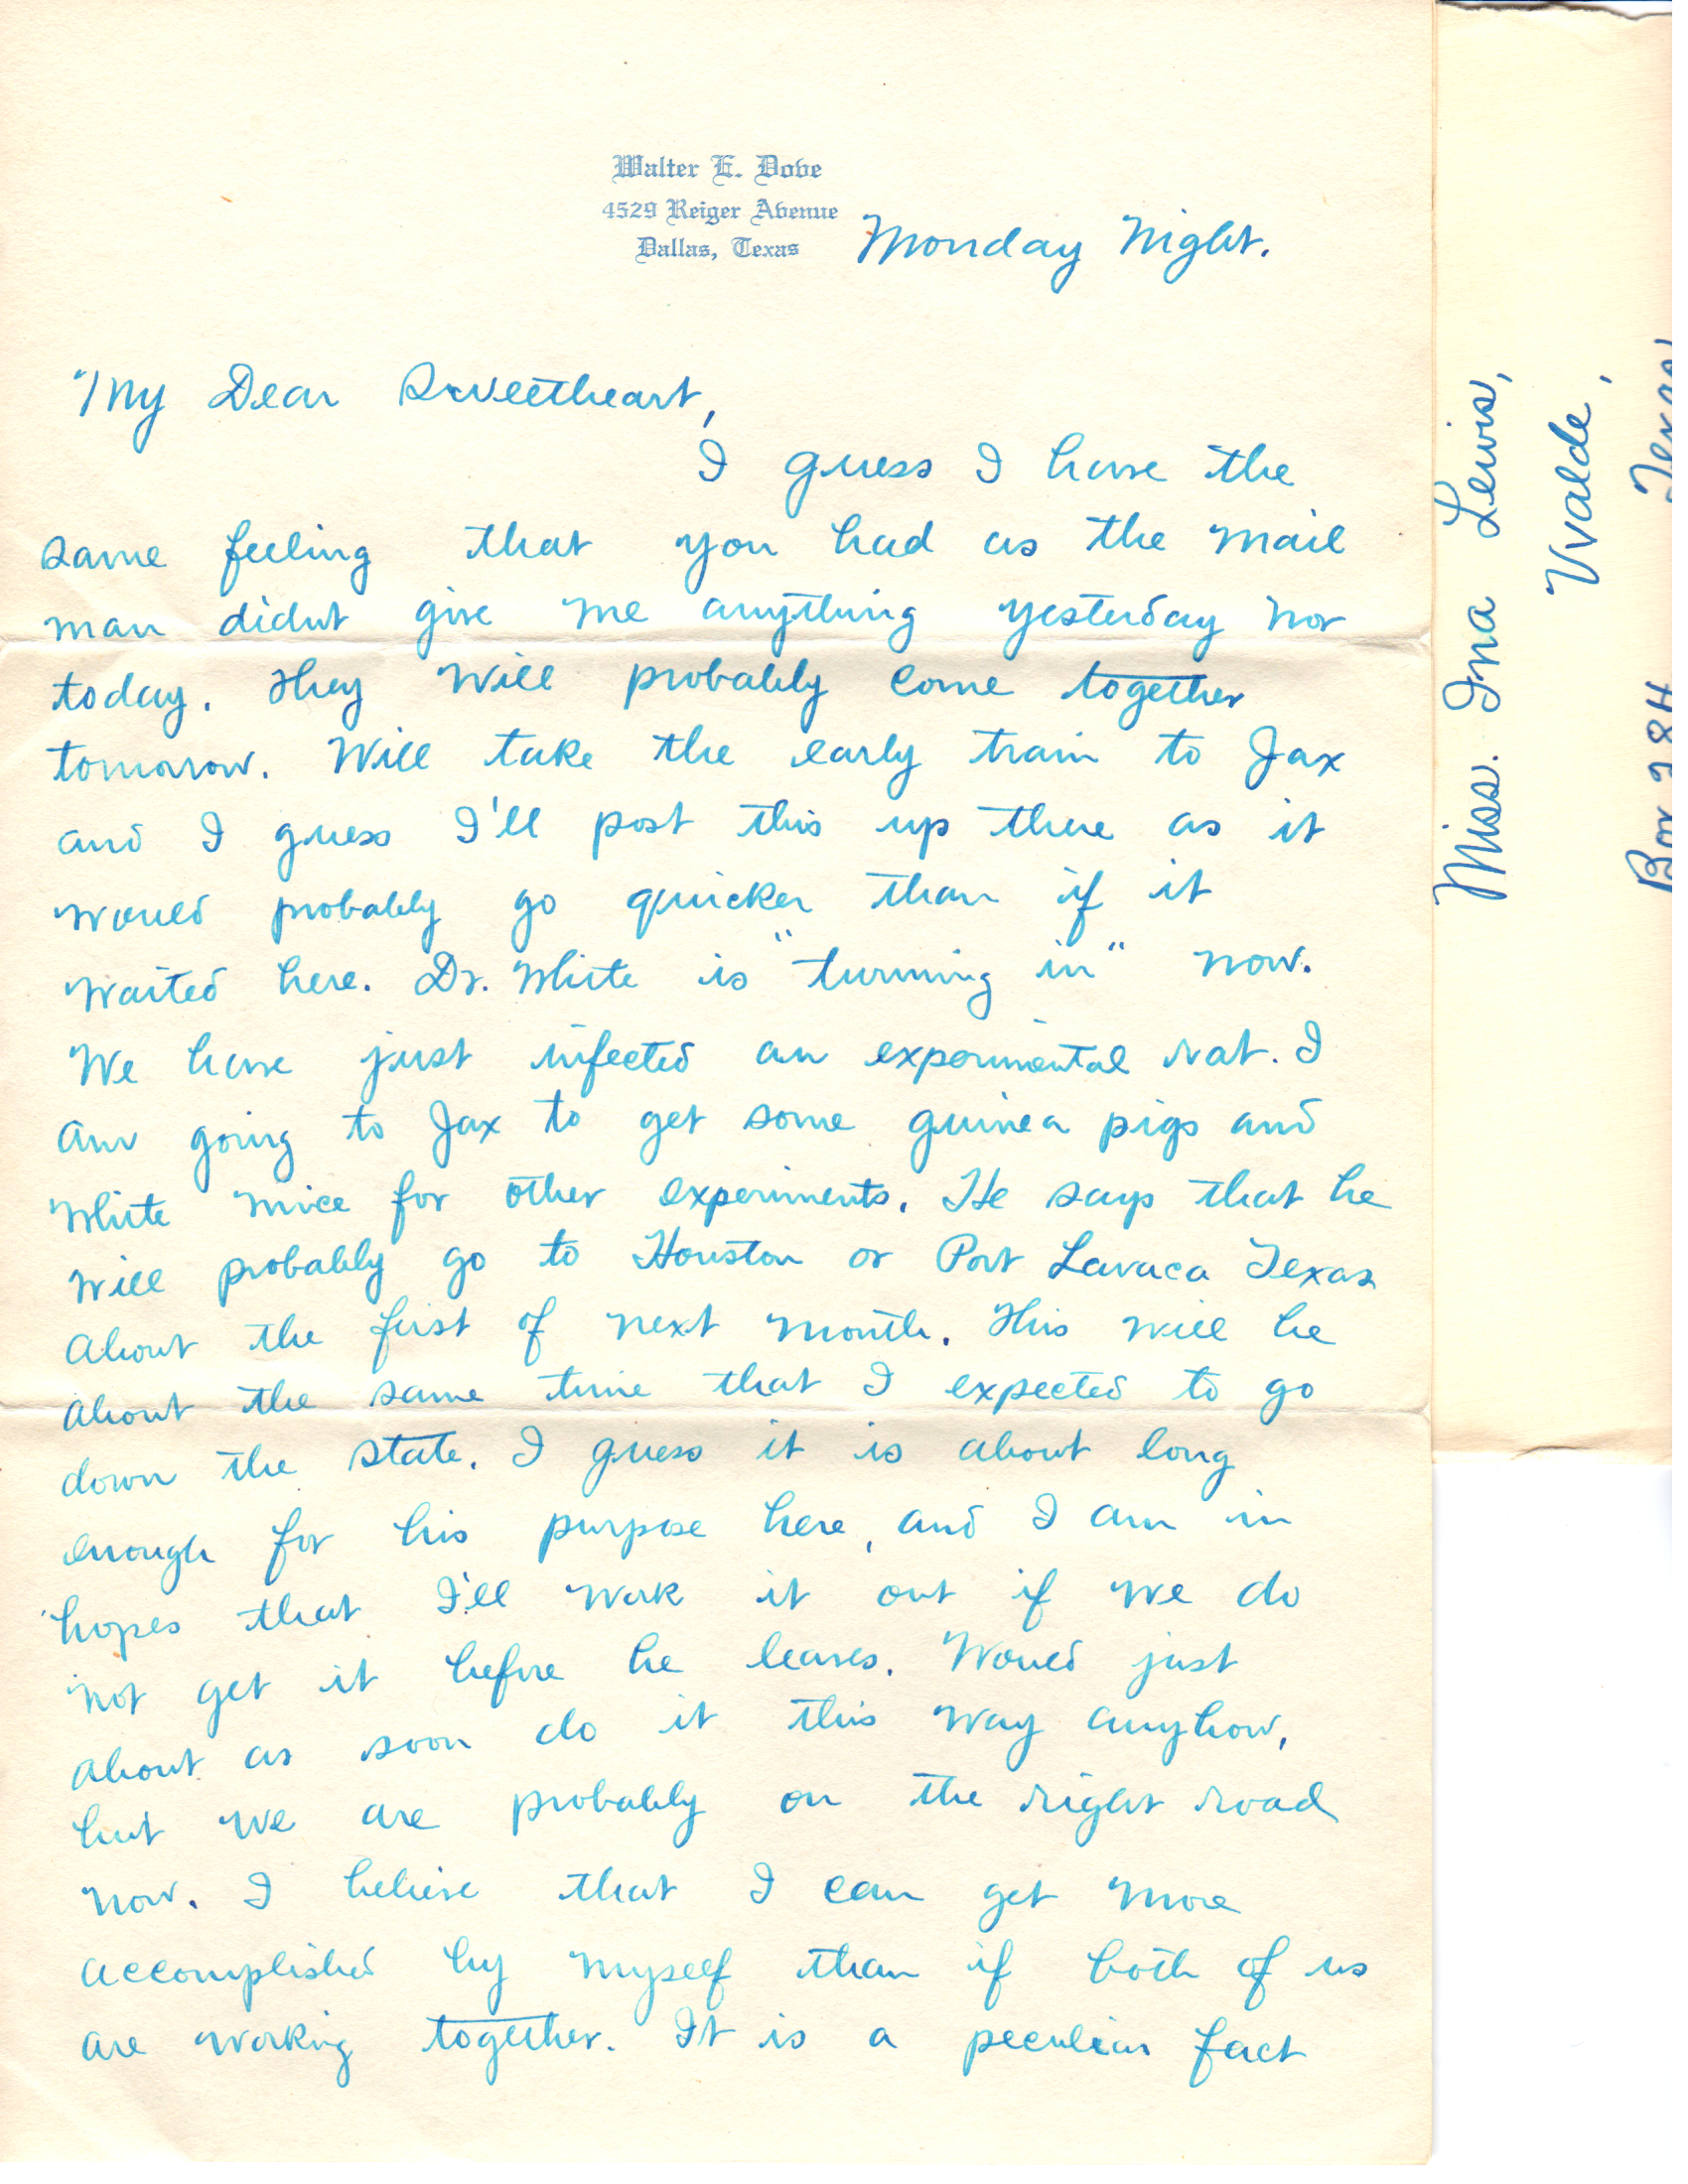 Walter E. Dove
4529 Reiger Avenue
Dallas, Texas
Monday Night.
My Dear Sweetheart,
I guess I have the
same feeling that you had as the mail
man didnt give me anything yesterday nor
today. They will probably come together
tomorrow. Will take the early train to Jax
and I guess I'll post this up there as it
would probably go quicker than if it
waited here. Dr. White is "turning in" now.
We have just infected an experimental rat. I
am going to Jax to get some guinea pigs and
white mice for other experiments. He says that he
will probably go to Houston or Port Lavaca Texas
about the first of next month. This will be
about the same time that I expected to go
down the state. I guess it is about long
enough for his purpose here, and I am in
hopes that I'll work it out if we do
not get it before he leaves. Would just
about as soon do it this way anyhow,
but we are probably on the right road
now. I believe that I can get more
accomplished by myself than if both of us
are working together. It is a peculiar fact
Miss. Ina Lewis,
Uvalde,
Texas
Box 284